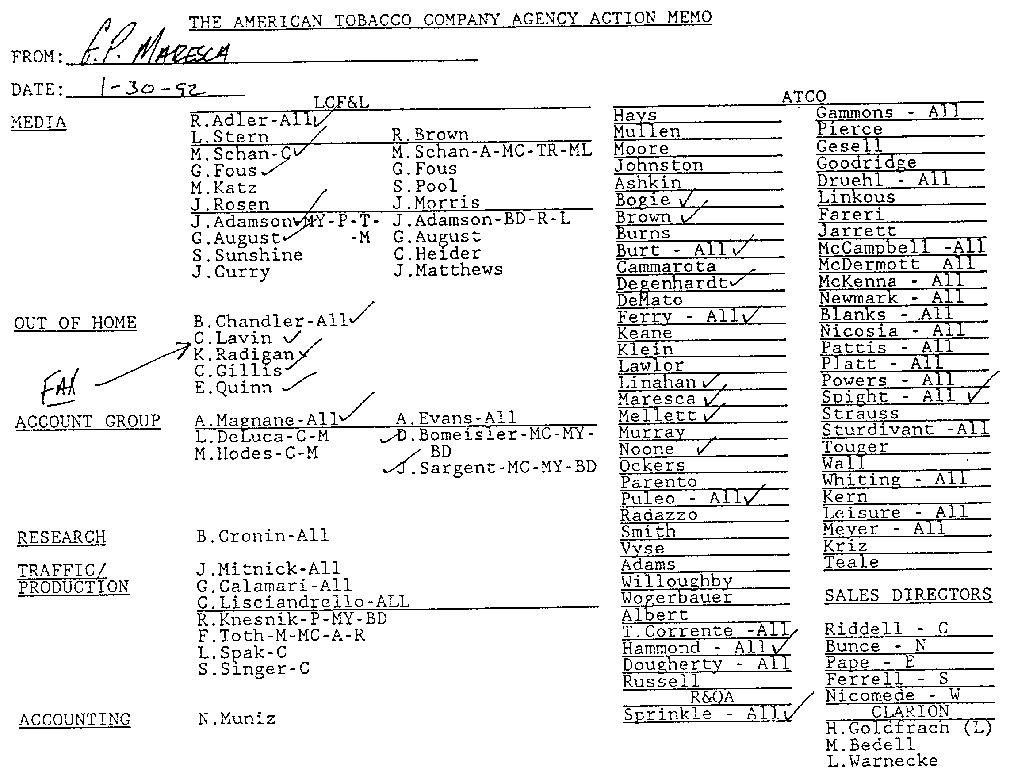 THE AMERICAN TOBACCO COMPANY AGENCY ACTION MEMO
FROM: E.P. MARESCA
DATE: 1-30-92
LCF&L
MEDIA
R.Adler-All
L.Stern R.Brown
M.Schan-C M.Schan-A-MC-TR-ML
G.Fous G.Fous
M.Katz S.Pool
J.Rosen J.Morris
J.Adamson-MY-P-T- J.Adamson-BD-R-L
G.August -M G.August
S.Sunshine C.Heider
J.Curry J.Matthews
OUT OF HOME B.Chandler-All
C.Lavin
K.Radigan
C.Gillis
FAX E.Quinn
ACCOUNT GROUP A.Magnane-All A.Evans-All
L.DeLuca-C-M D.Bomeisler-MC-MY-
M.Hodes-C-M BD
J.Sargent-MC-MY-BD
RESEARCH B.Cronin-All
TRAFFIC/ J.Mitnick-All
PRODUCTION G.Calamari-All
C.Lisciandrello-ALL
R.Knesnik-P-MY-BD
F.Toth-M-MC-A-R
L.Spak-C
S.Singer-C
ACCOUNTING N.Muniz
ATCO
Hays
Mullen
Moore
Johnston
Ashkin
Bogie
Brown
Burns
Burt - All
Cammarota
Degenhardt
DeMato
Ferry - All
Keane
Klein
Lawlor
Linahan
Maresca
Mellett
Murray
Noone
Ockers
Parento
Puleo - All
Radazzo
Smith
Vyse
Adams
Willoughby
Wogerbauer
Albert
T.Corrente -All
Hammond - All
Dougherty - All
Russell
R&OA
Sprinkle - All
Gammons - All
Pierce
Gesell
Goodridge
Druehl - All
Linkous
Fareri
Jarrett
McCampbell -All
McDermott All
McKenna - All
Newmark - All
Blanks - All
Nicosia - All
Pattis - All
Platt - All
Powers - All
Spight - All
Strauss
Sturdivant -All
Touger
Wall
Whiting - All
Kern
Leisure - All
Meyer - All
Kriz
Teale
SALES DIRECTORS
Riddell - C
Bunce - N
Pape - E
Ferrell - S
Nicomede - W
CLARION
H.Goldfrach (L)
M.Bedell
L.Warnecke